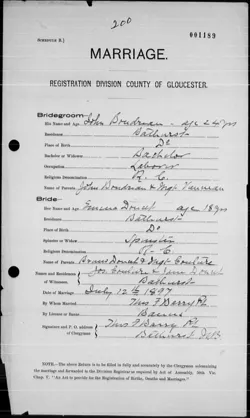 200
001189
SCHEDULE B.]
MARRIAGE.
REGISTRATION DIVISION COUNTY OF GLOUCESTER.
Bridegroom:
His Name and Age John Boudreau age 24 yrs
Residence Bathurst
Place of Birth Do
Bachelor or Widower Bachelor
Occupation Laborer
Religious Denomination R. C.
Names of Parents John Boudreau & Mgt
Bride
Her Name and Age Doucet age 18 yrs
Residence Bathurst
Place of Birth Do
Spinster or Widow Spinster
Religious Denomination R. C.
Names of Parents Doucet & Mgt Couture
Names and Residences Jos Couture &
of Witnesses Bathurst
Date of Marriage July 12 1897
By Whom Married Thos F Barry Pt
By License or Banns Banns
Signature and P. O. address of Clergyman Thos F Barry Pt
Bathurst N B
NOTE.—The above Return is to be filled in fully and accurately by the Clergyman solemnizing the marriage and forwarded to the Division Registrar as required by Act of Assembly, 50th Vic. Chap. 5. "An Act to provide for the Registration of Births, Deaths and Marriages."